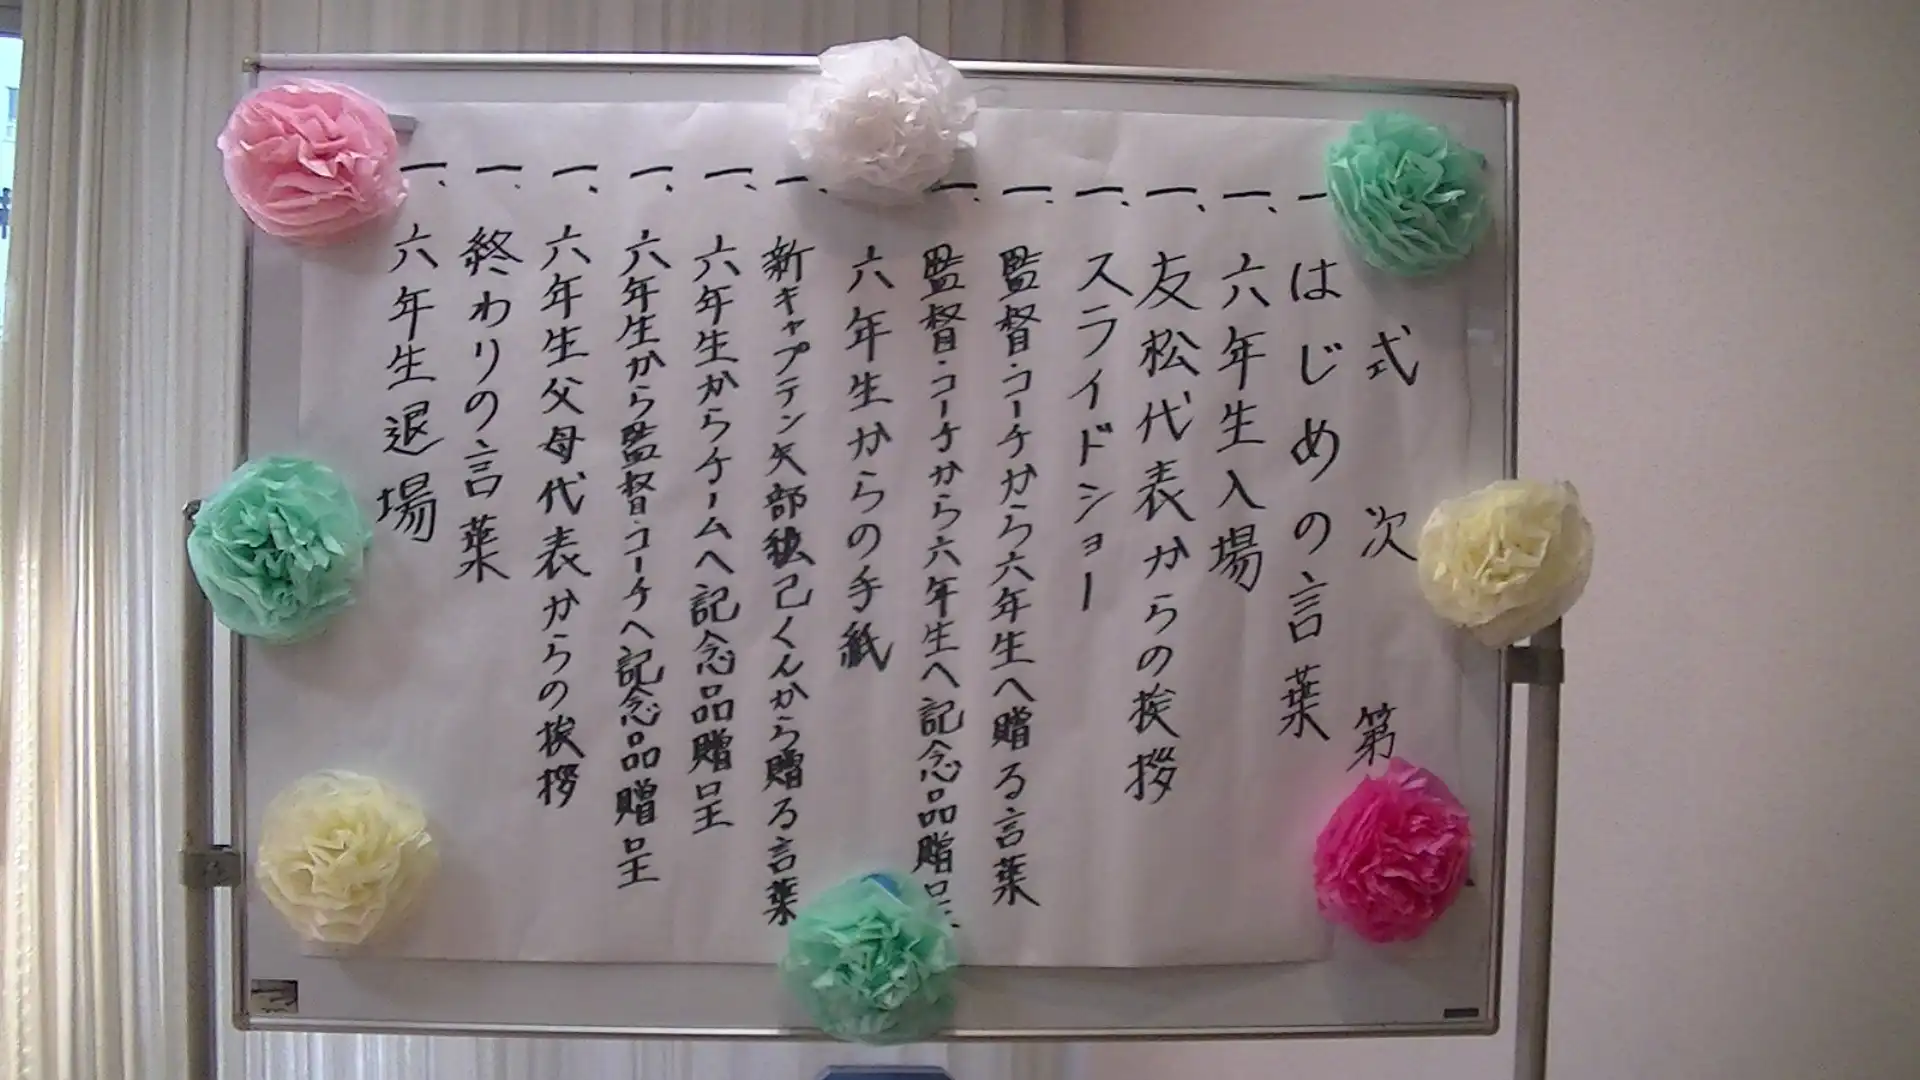 式次第
一、はじめの言葉
一、六年生入場
一、友松代表からの挨拶
一、スライドショー
一、監督・コーチから六年生へ贈る言葉
一、監督・コーチから六年生へ記念品贈呈
六年生からの手紙
一、新キャプテン矢部 己くんから贈る言葉
一、六年生からチームへ記念品贈呈
一、六年生から監督・コーチへ記念品贈呈
一、六年生父母代表からの挨拶
一、終わりの言葉
一、六年生退場